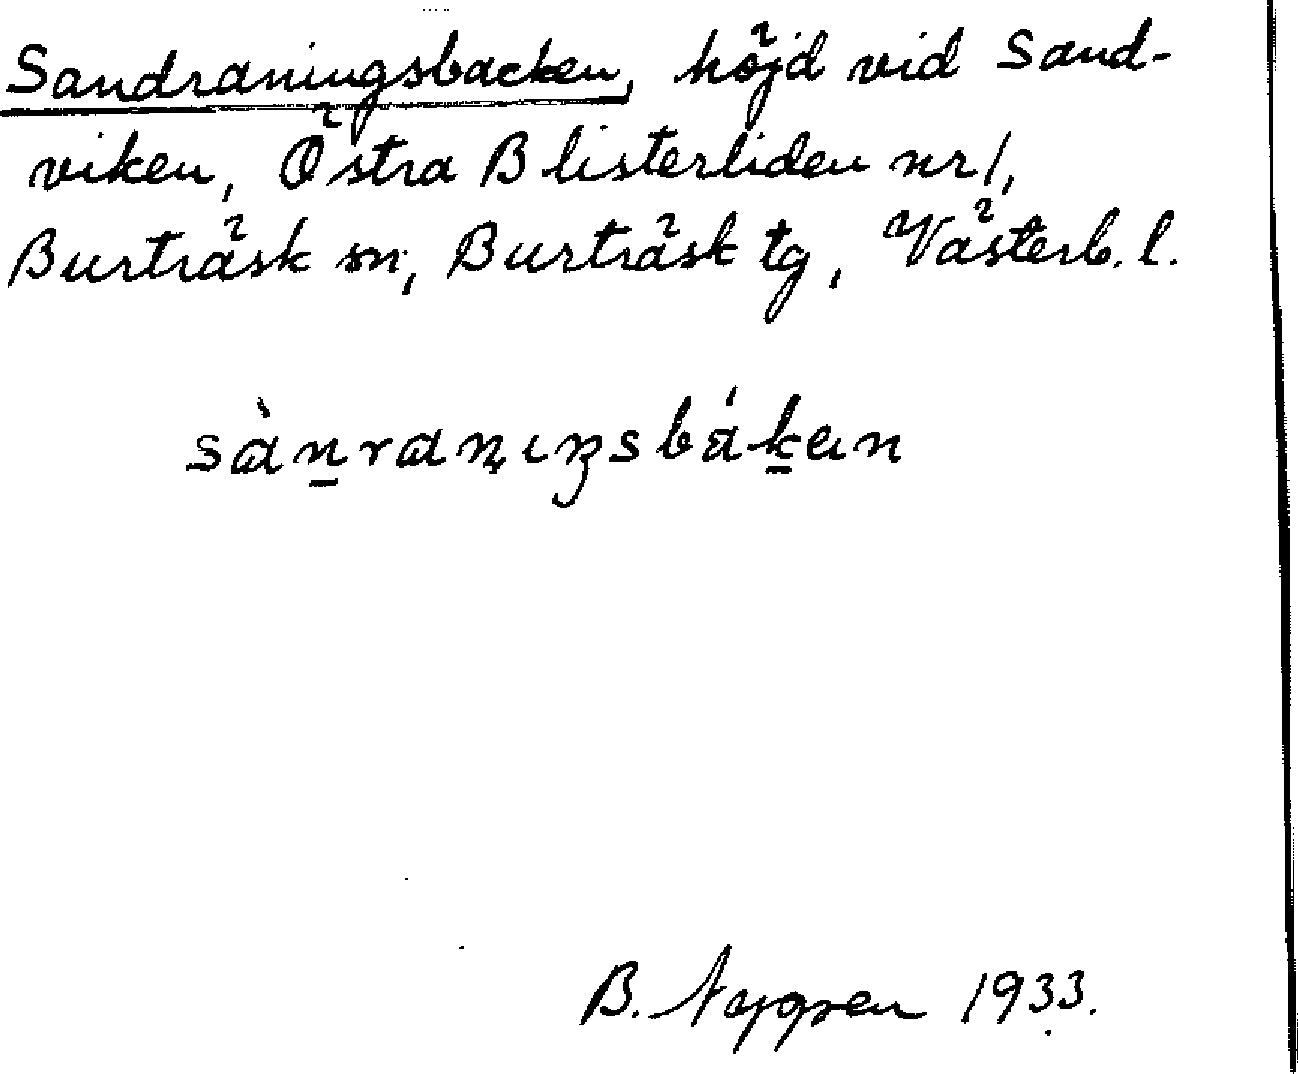 Sandraningsbacken, höjd vid Sand-
viken, Östra Blisterliden nr 1,
Burträsk sn, Burträsk tg, Västerb. l.
sàn̠raṇıŋsbák̠en
B. Nygren 1933.